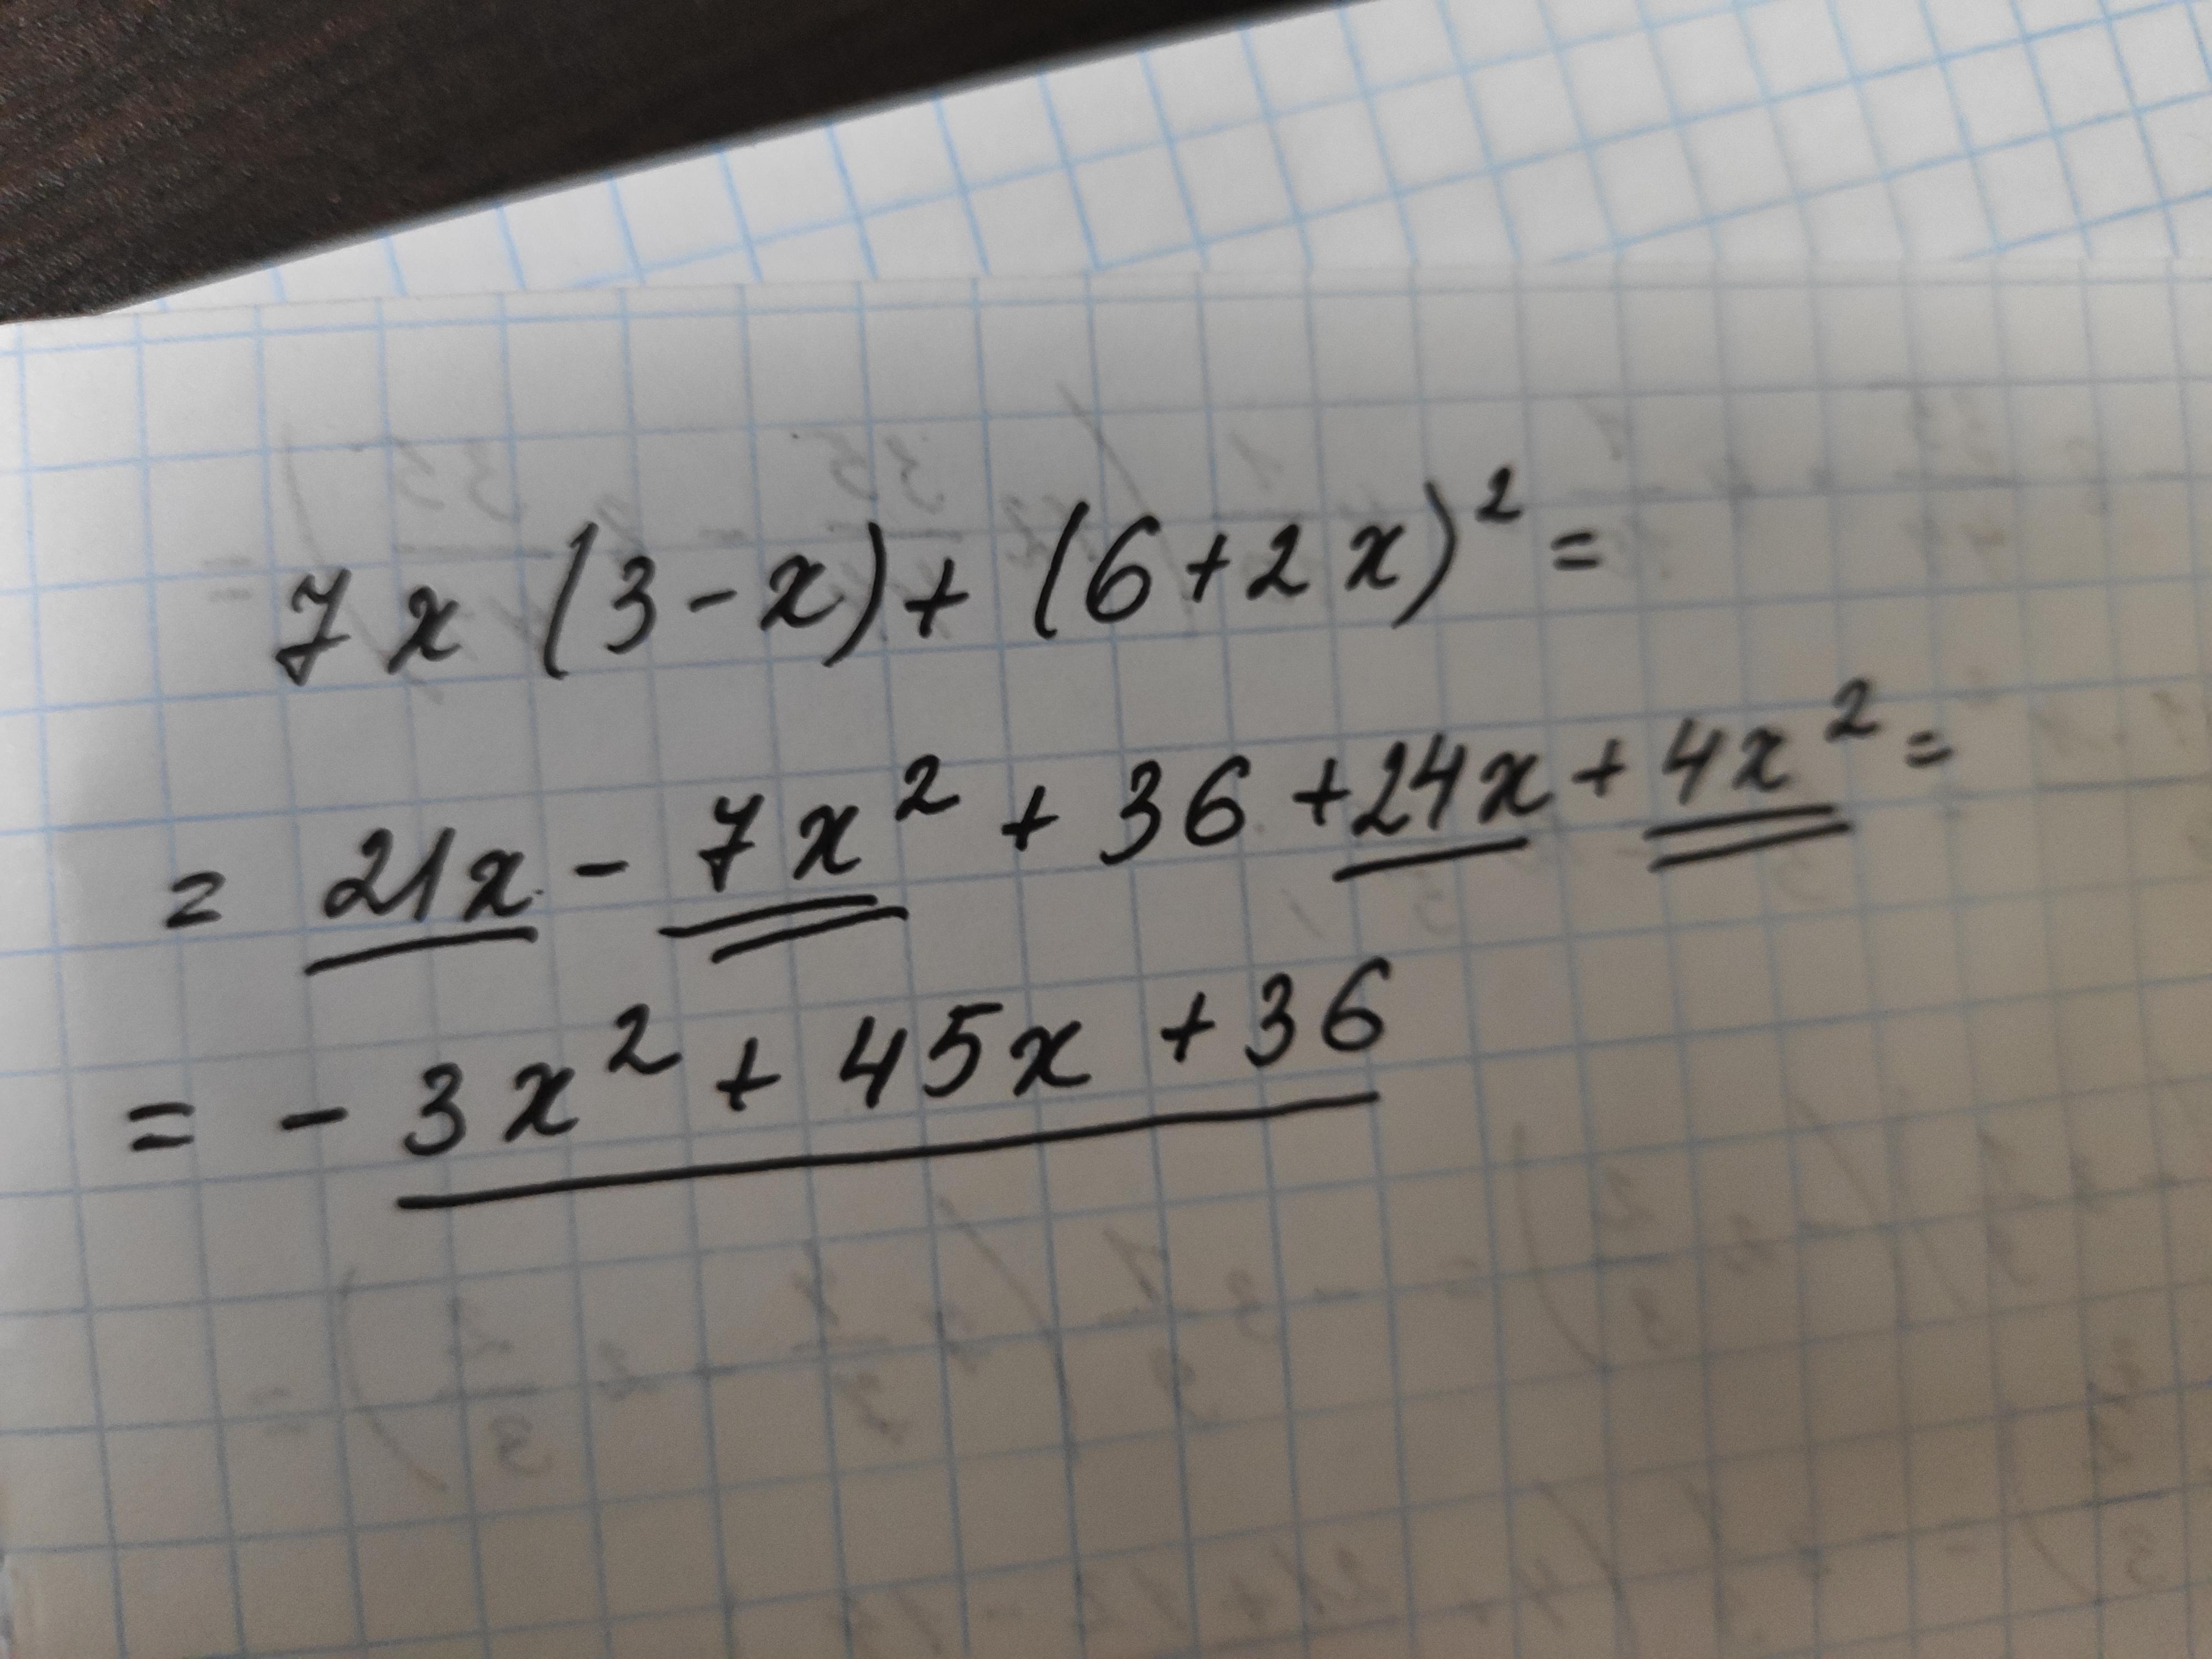 7x(3-x)+(6+2x)²=
=21x-7x²+36+24x+4x²=
=-3x²+45x+36